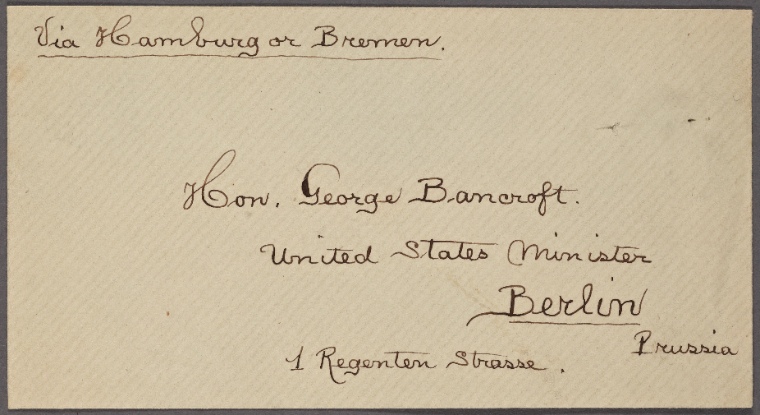 Via Hamburg or Bremen.
Hon. George Bancroft.
United States Minister
Berlin
Prussia
1 Regenten Strasse.